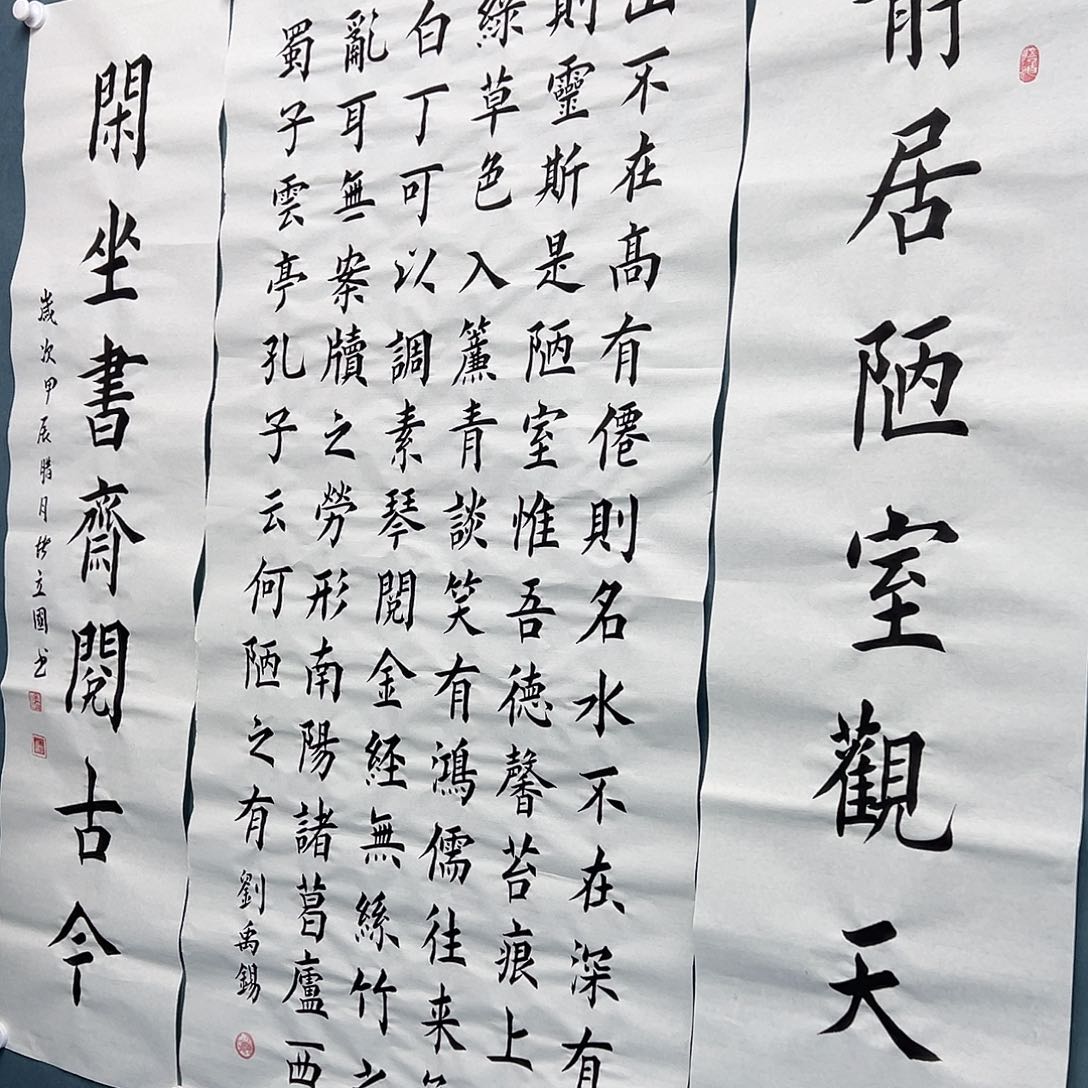 居陋室觀天
山不在高有僊則名水不在深有
則靈斯是陋室惟吾德馨苔痕上
綠草色入簾青談笑有鴻儒往来
白丁可以調素琴閲金経無絲竹之
亂耳無案牘之勞形南陽諸葛廬西
蜀子雲亭孔子云何陋之有
劉禹錫
閑坐書齋閲古今
歲次甲辰腊月立國书